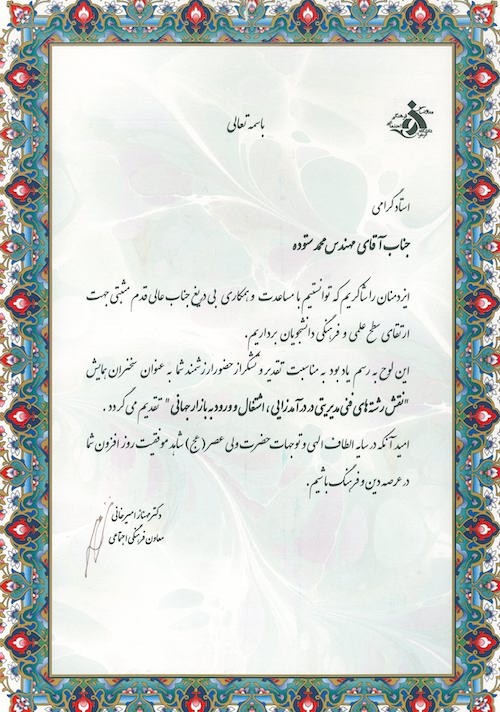 باسمه تعالی
استاد گرامی
جناب آقای مهندس محمد ستوده
ایزد منان را شاکریم که توانستیم با مساعدت و همکاری بی دریغ جناب عالی قدم مثبتی جهت
ارتقای سطح علمی و فرهنگی دانشجویان برداریم.
این لوح به رسم یادبود به مناسبت تقدیر و تشکر از حضور ارزشمند شما به عنوان سخنران همایش
"نقش رشته های فنی مدیریتی در درآمدزایی، اشتغال و ورود به بازار جهانی" تقدیم می گردد.
امید آنکه در سایه الطاف الهی و توجهات حضرت ولی عصر (عج) شاهد موفقیت روز افزون شما
در عرصه دین و فرهنگ باشیم.
دکتر مهناز امیرخانی
معاون فرهنگی اجتماعی